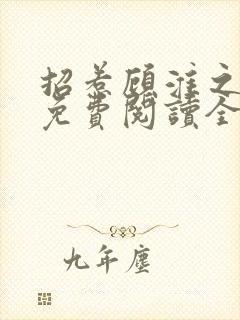 招惹顾淮之
免費閱讀全
九年塵